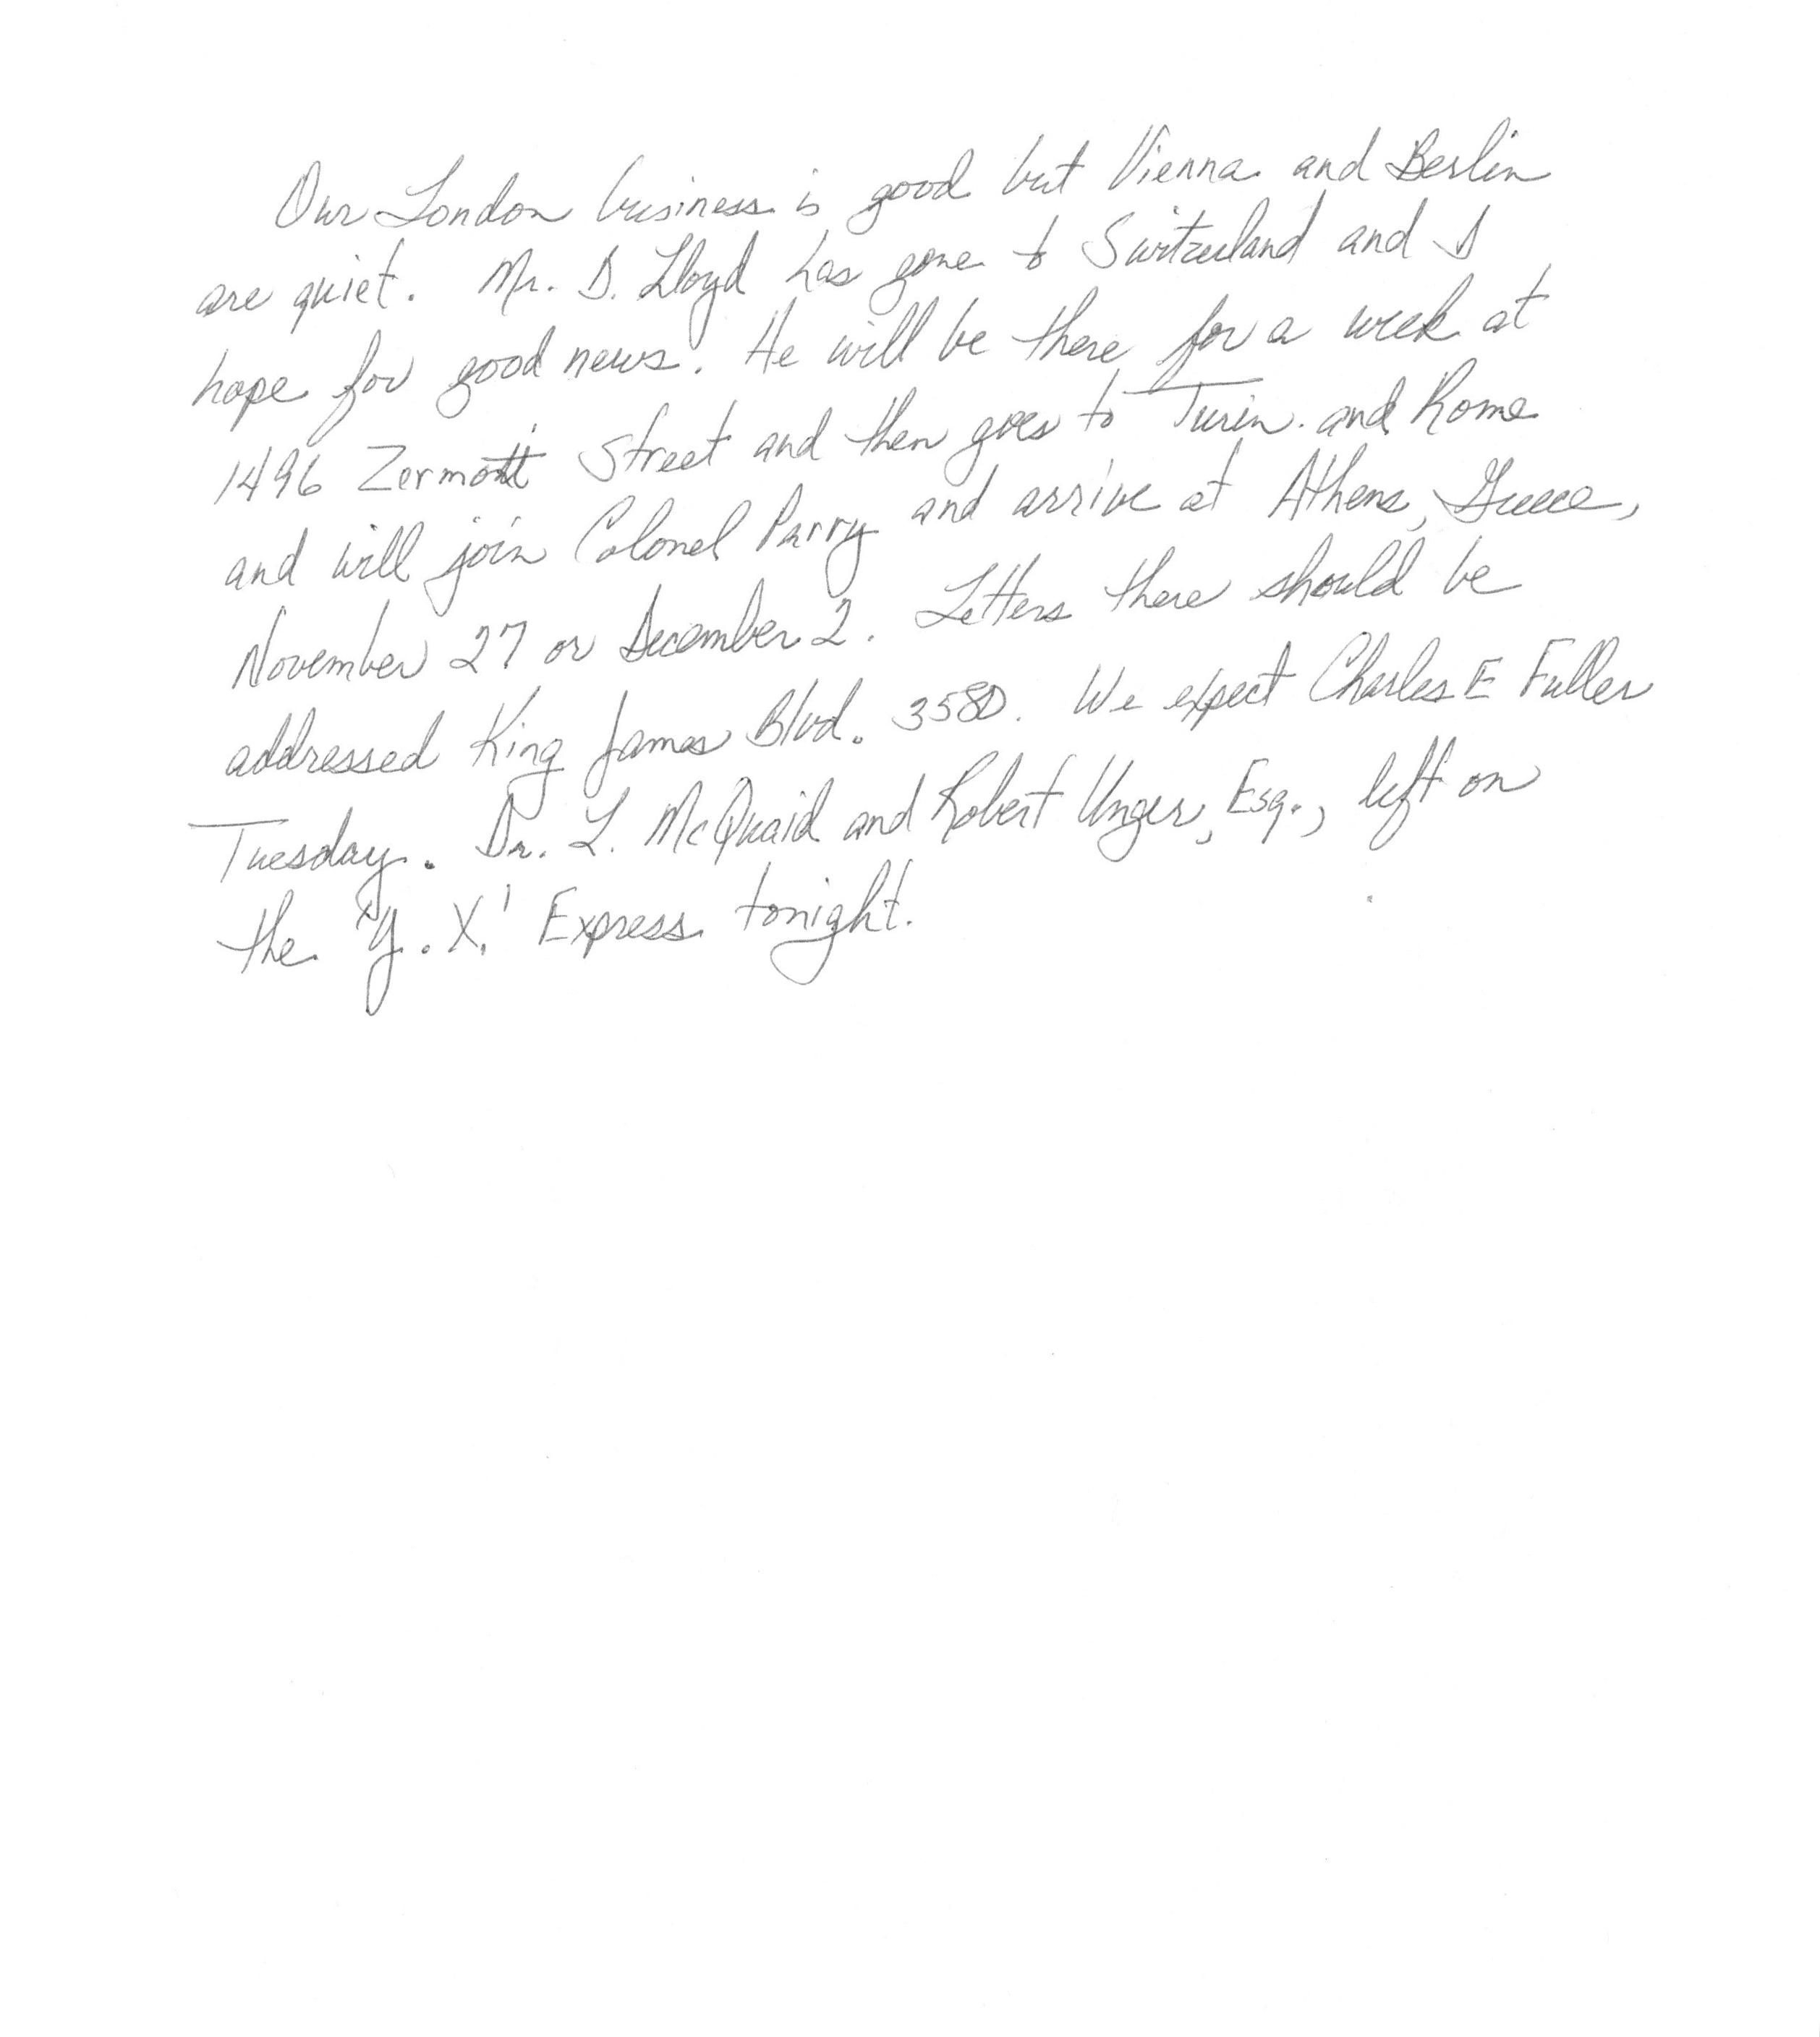 Our London business is good but Vienna and Berlin
are quiet. Mr. D. Lloyd has gone to Switzerland and I
hope for good news. He will be there for a week at
1496 Zermott Street and then goes to Turin. and Rome
and will join Colonel Parry and arrive at Athens, Greece,
November 27 or December 2. Letters there should be
addressed King James Blvd. 3580. We expect Charles E Fuller
Tuesday. Dr. L. McQuaid and Robert Unger, Esq., left on
the 'Y. X.' Express tonight.